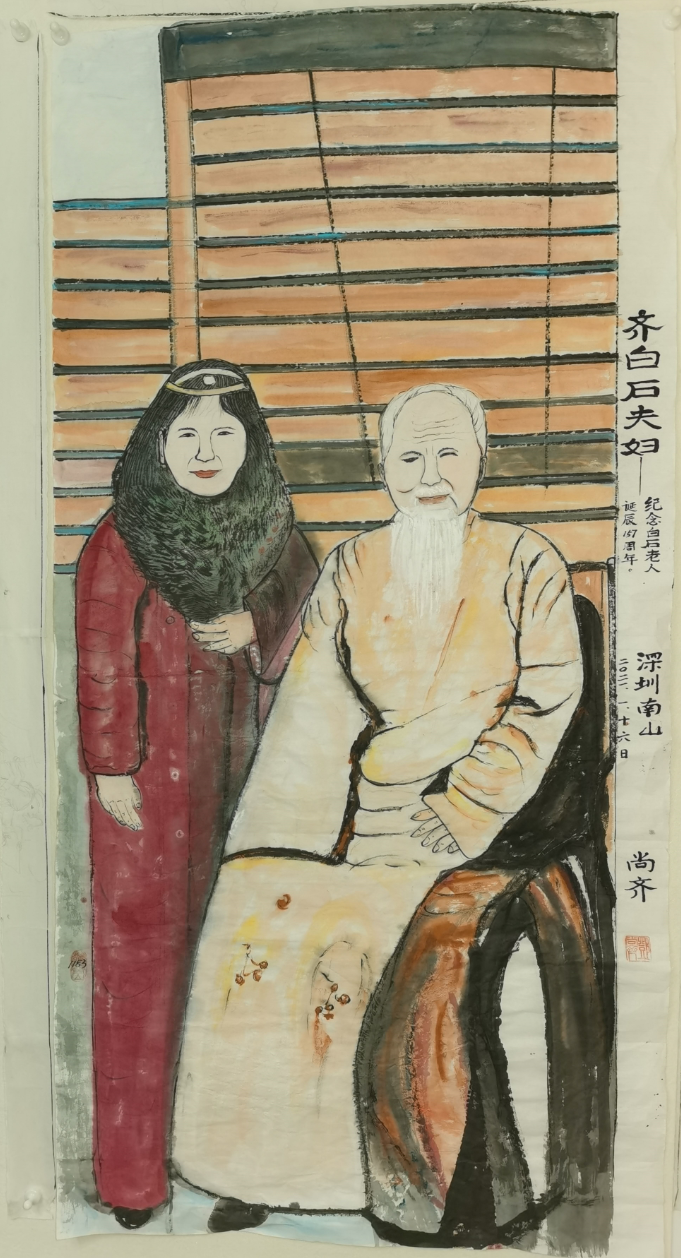 齐白石夫妇——
纪念白石老人
诞辰157周年。
深圳南山
二〇二一、一、十六日
尚齐